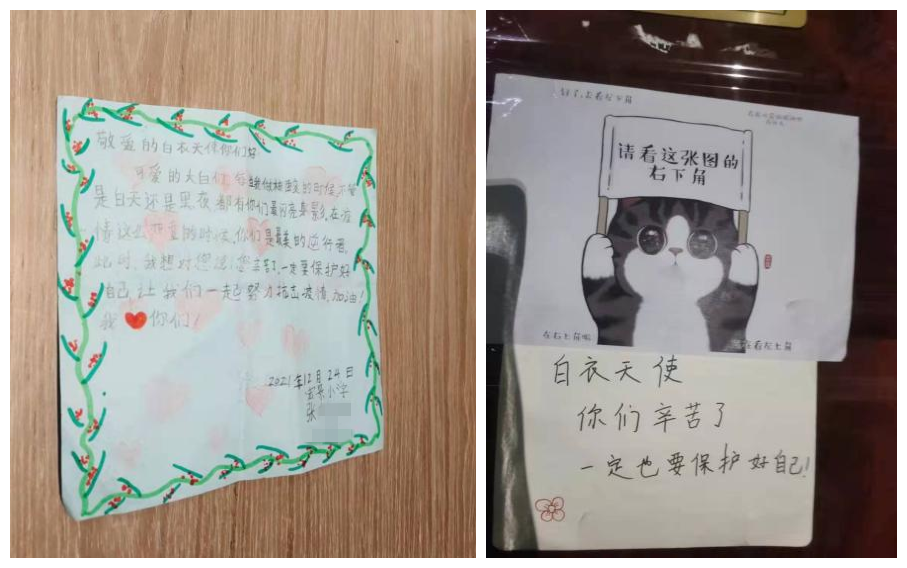 敬爱的白衣天使你们好
可爱的大白们,每
的时候,不管
是白天还是黑夜都有你们最闪亮身影,在疫
情这么严重的时候,你们是最美的逆行者,
此时,我想对您说:您辛苦了,一定要保护好
自己让我们一起努力抗击疫情,加油!
我❤你们!
2021年12月24日
张
请看这张图的
右下角
在右上角啦
在看左上角
白衣天使
你们辛苦了
一定也要保护好自己!